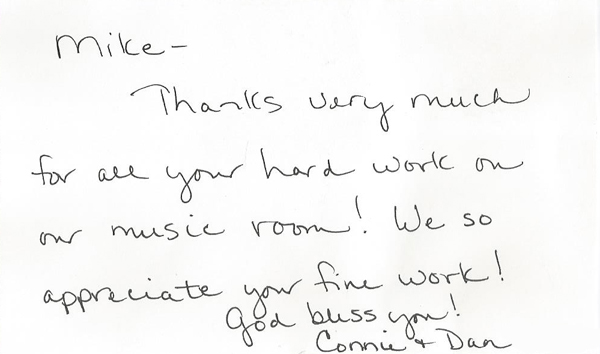 Mike-
Thanks very much
for all your hard work on
our music room! We so
appreciate your fine work!
God bless you!
Connie + Dan